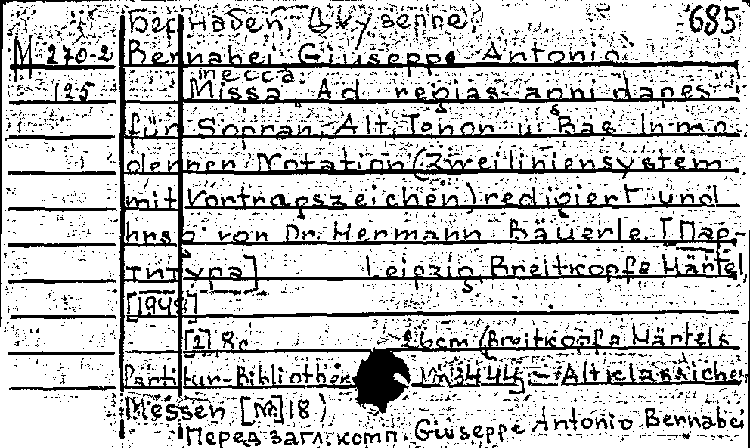 Бернабеи, Джузеппе 685
М 270-2 Bernabei Giuseppe Antonio
125 Месса.
Missa "Ad regias agni dapes"
für Sopran, Alt, Tenor u. Bas. In mo
dernen Notation (Zweiliniensystem
mit Vortragszeichen) redigiert und
hrsg. von Dr. Hermann Bäuerle. [Пар-
титура] Leipzig, Breitkopf & Härtel,
[2], 8c 26cm (Breitkopf & Härtels
Partitur-Bibliothek - Altklassiche
Messen [№] 18)
Перед загл. комп. Giuseppe Antonio Bernabei